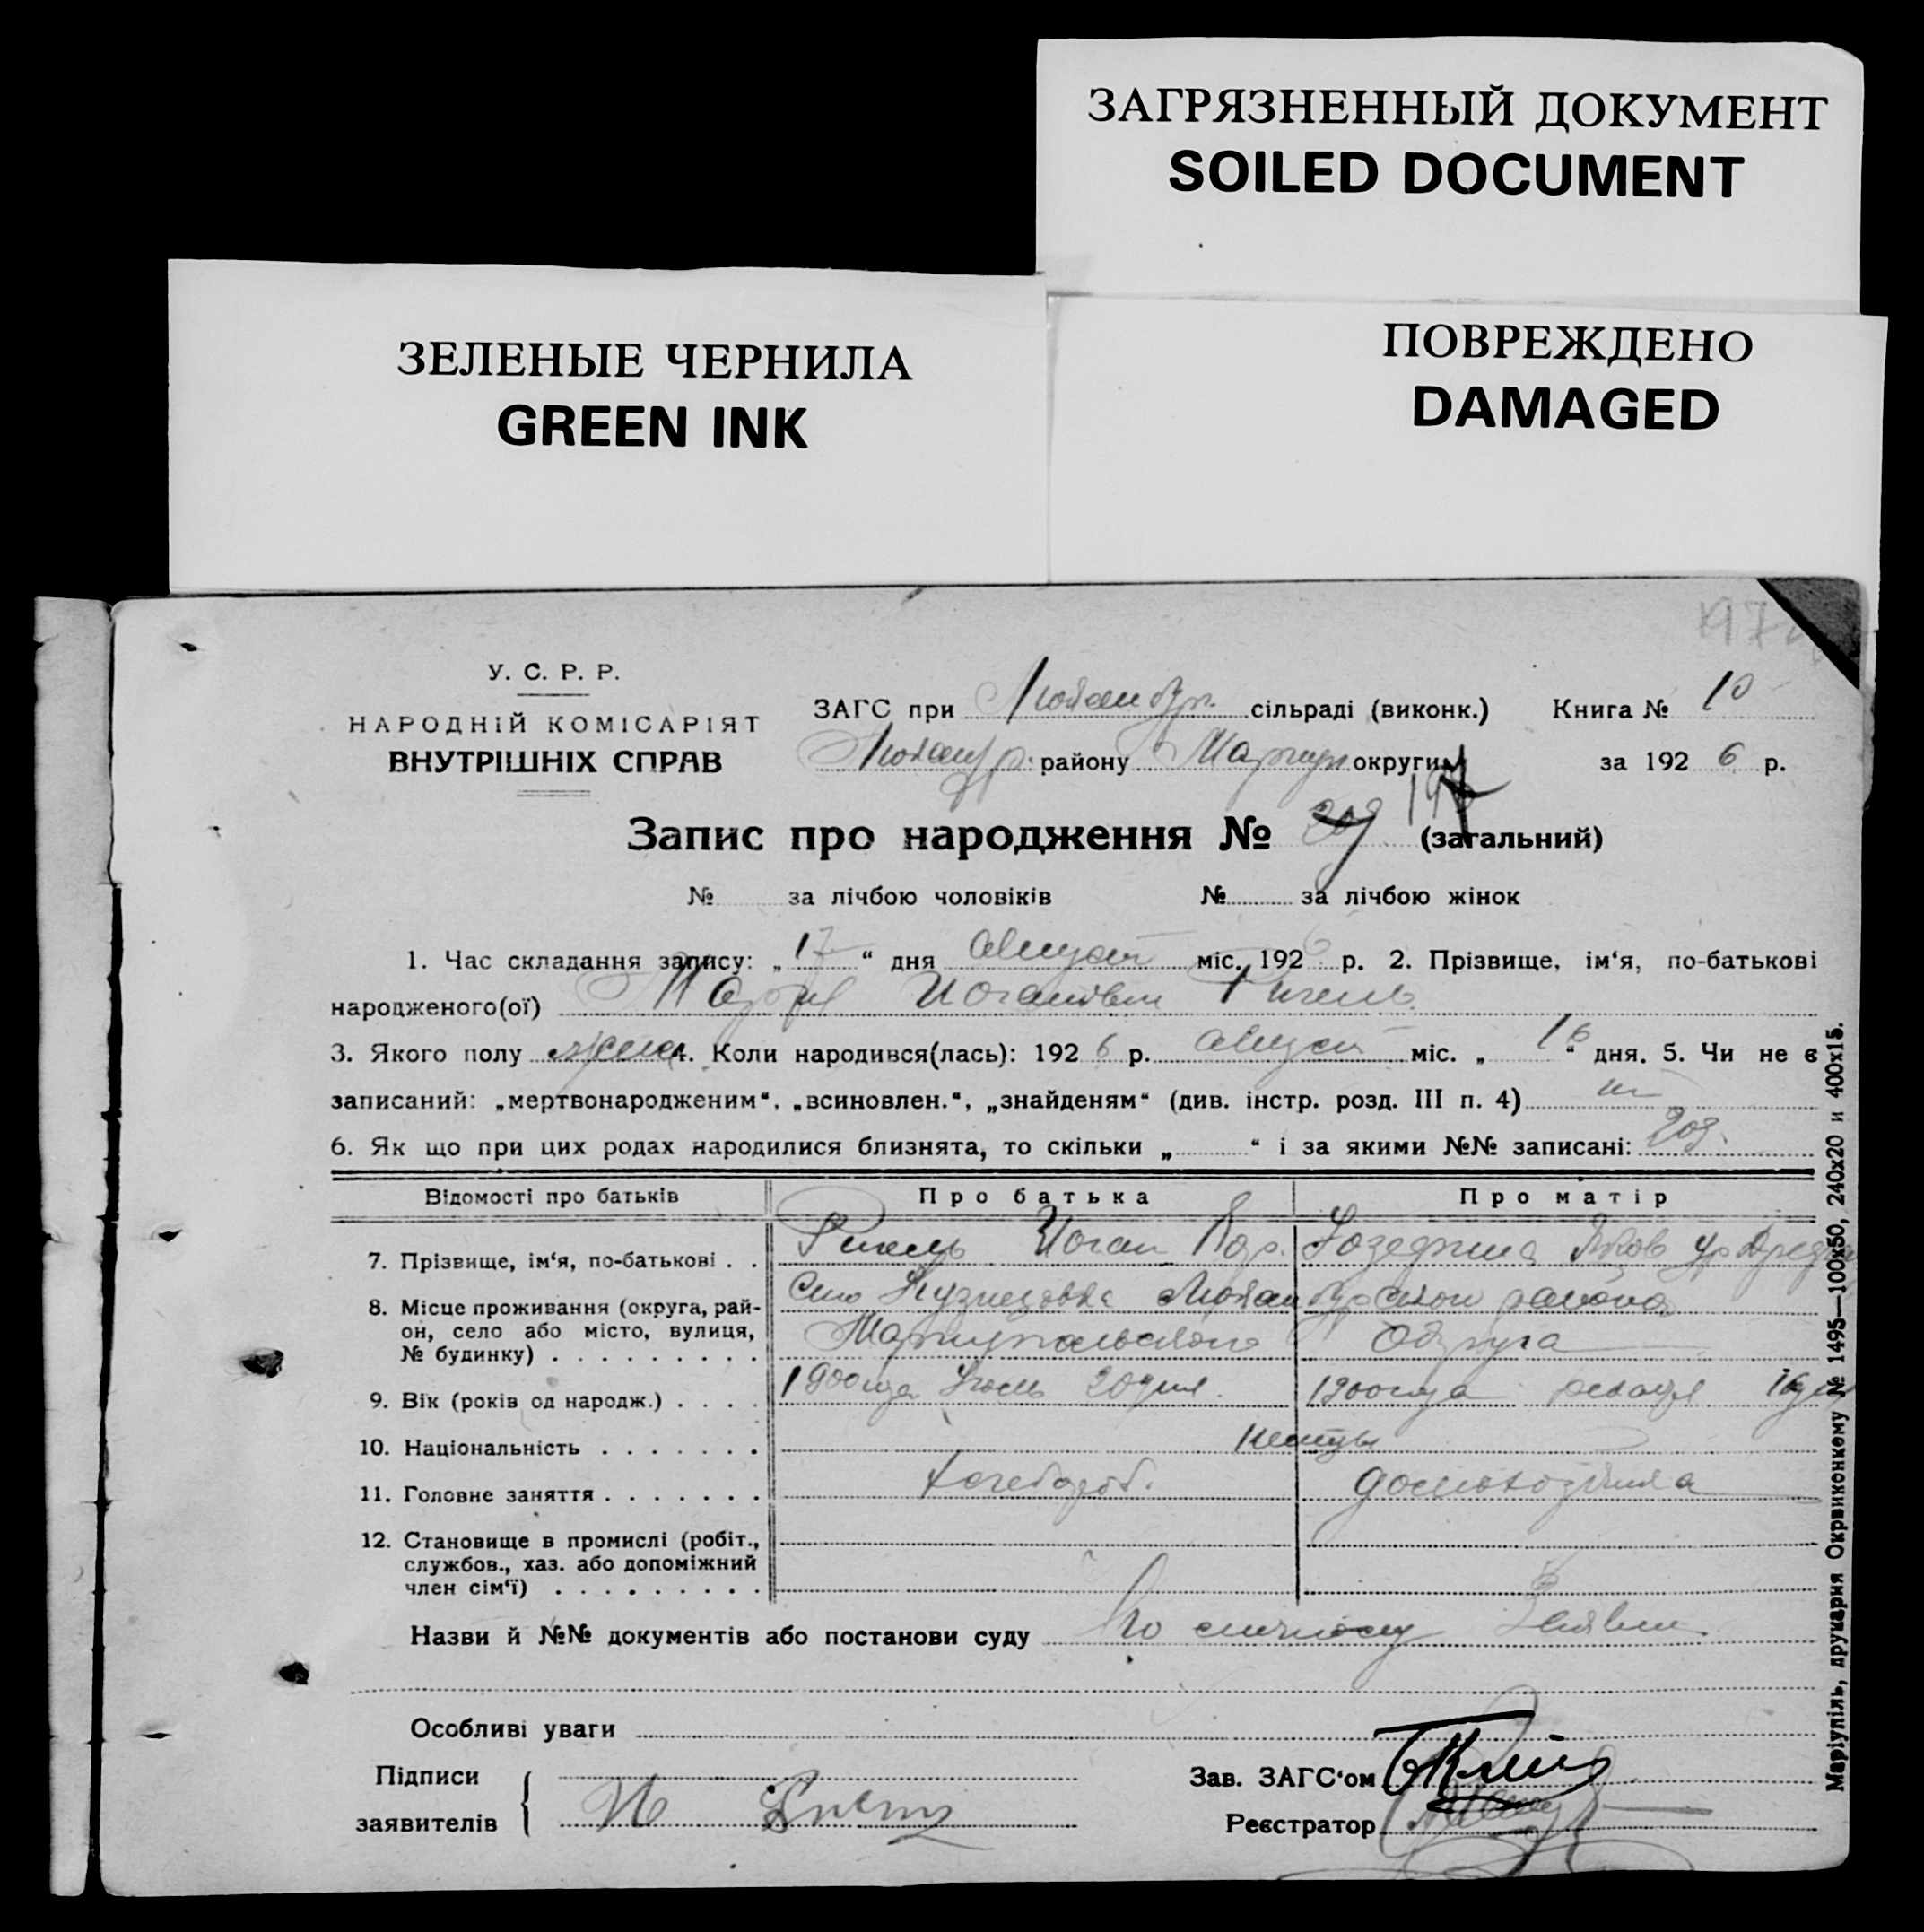 ЗАГРЯЗНЕННЫЙ ДОКУМЕНТ
SOILED DOCUMENT
ЗЕЛЕНЫЕ ЧЕРНИЛА
GREEN INK
ПОВРЕЖДЕНО
DAMAGED
197
У. С. Р. Р.
НАРОДНІЙ КОМІСАРІЯТ
ВНУТРІШНІХ СПРАВ
ЗАГС при Люксембур. сільраді (виконк.) Книга № 10
району Мариуп округи за 192 6 р.
Запис про народження № 209 197 (загальний)
№ за лічбою чоловіків № за лічбою жінок
1. Час складання запису: „ 17 “ дня август міс. 192 6 р. 2. Прізвище, ім‘я, по-батькові
народженого(ої) Мария
3. Якого полу жен 4. Коли народився(лась): 192 6 р. август міс. „ 16 “ дня. 5. Чи не є
записаний: „мертвонародженим“, „всиновлен.“, „знайденям“ (див. інстр. розд. III п. 4)
6. Як що при цих родах народилися близнята, то скільки „ “ і за якими №№ записані: 209.
Відомості про батьків Про батька Про матір
7. Прізвище, ім‘я, по-батькові . . Иоган Жозефина Яков
8. Місце проживання (округа, рай-
он, село або місто, вулиця,
№ будинку) . . . . . . . . .
Село Кузнецовка Люксембургского района
Мариупольского Округа
9. Вік (років од народж.) . . . . 1900года 20 дня. 1900года
10. Національність . . . . . . . немцы
11. Головне заняття . . . . . . . хлебороб. домохозяйка
12. Становище в промислі (робіт.,
службов., хаз. або допоміжний
член сім‘ї) . . . . . . . . .
Назви й №№ документів або постанови суду По личному
Особливі уваги
Підписи
заявителів
Зав. ЗАГС‘ом
Реєстратор
Маріупіль, друкарня Окрвиконкому № 1495—100х50, 240х20 и 400х15.